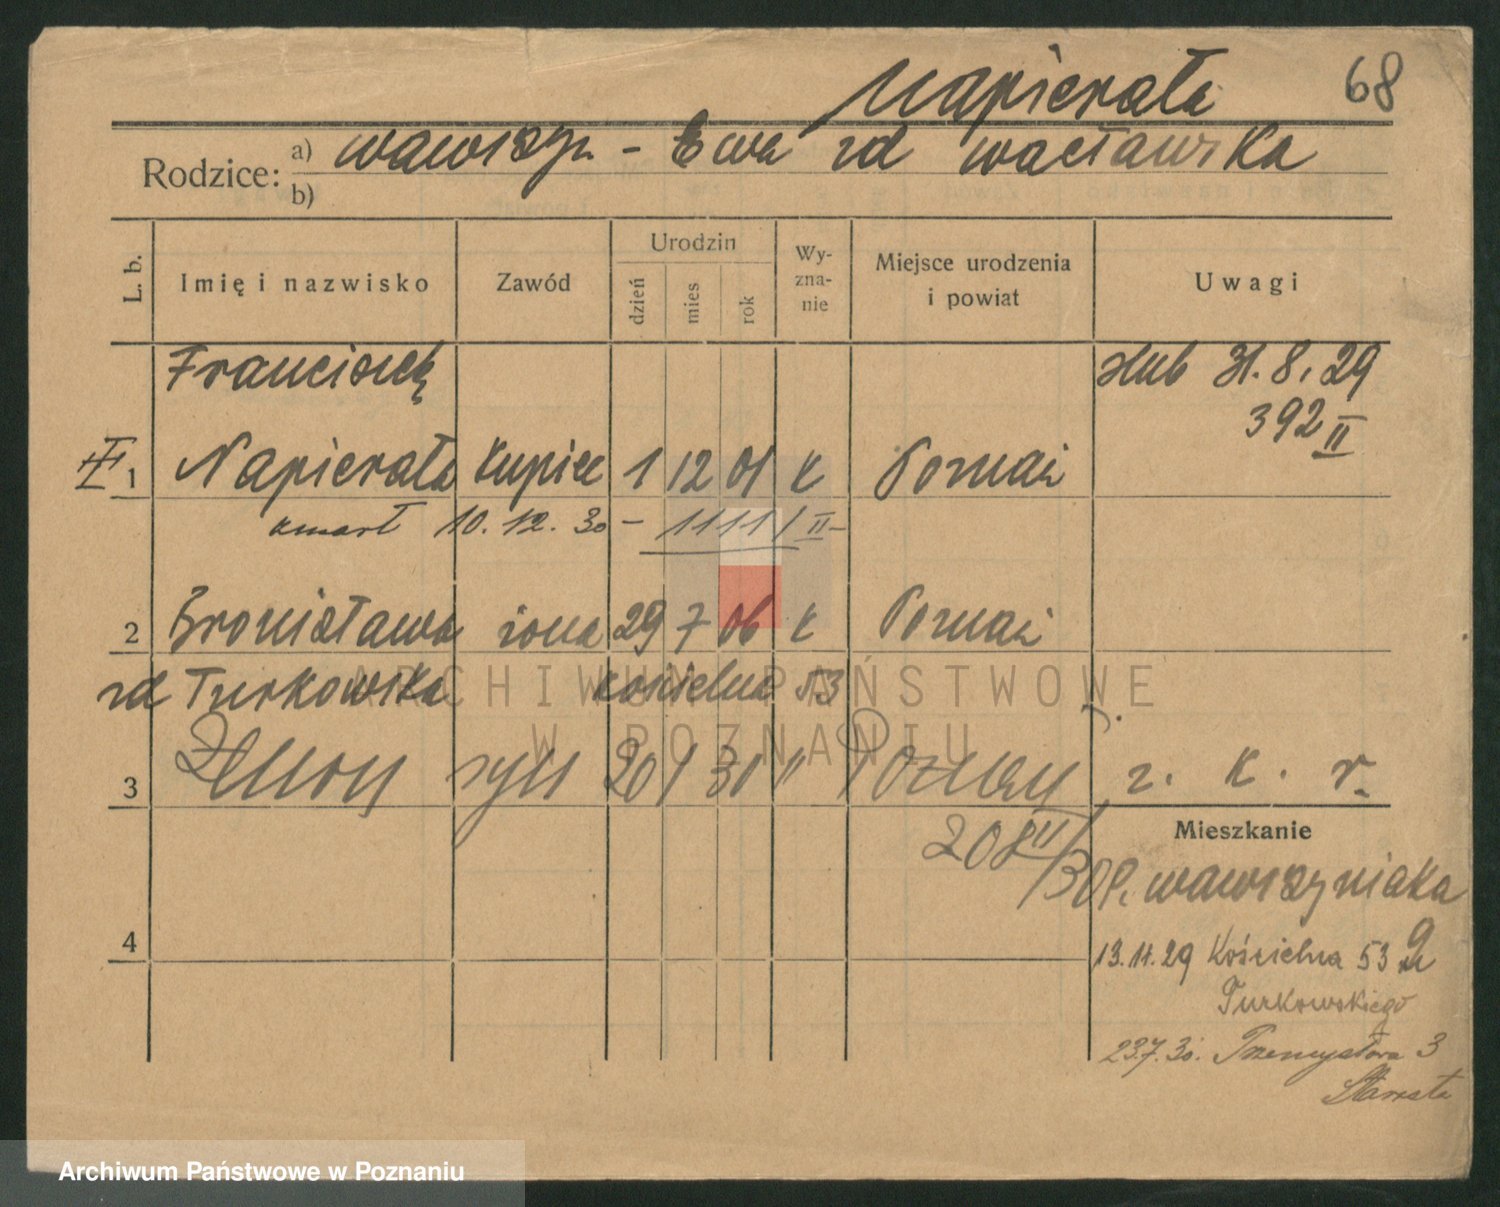 Napierała 68
Rodzice: a) Wawrzyn - Ewa zd Wacławska
b)
L. b. Imię i nazwisko Zawód Urodzin dzień mies rok Wyzna-nie Miejsce urodzenia i powiat Uwagi
Franciszek ślub 31.8.29
392 II
1 Napierała kupiec 1 12 01 k Poznań
zmarł 10.12.30 - 1111/II -
2 Bronisława żona 29 7 06 k Poznań
zd Turkowska Kościelna 53
ARCHIWUM PAŃSTWOWE
W POZNANIU
3 Zenon syn 20 1 30 Poznań z. k. r.
208 II/30
Mieszkanie
Wawrzyniaka
4
13.11.29 Kościelna 53
Turkowskiego
23.7.30. Przemysłowa 3
Starosta
Archiwum Państwowe w Poznaniu